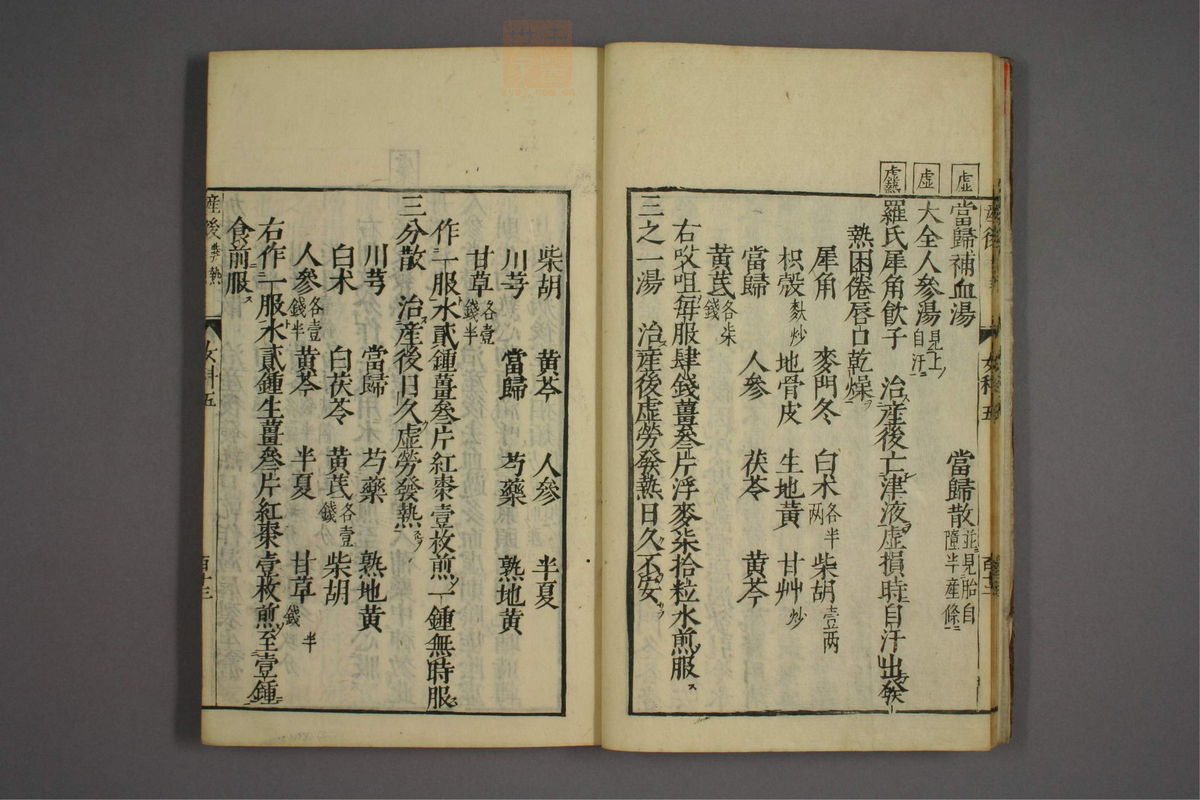 虚
虚
虚熱
當歸補血湯 當歸散並見胎自墮半産條ニ
大全人參湯見上自汗ニ
羅氏犀角飲子 治産後亡津液虚損時自汗出發
熱困倦唇口乾燥
犀角 麥門冬 白术各半两 柴胡壹两
枳殼麩炒 地骨皮 生地黄 甘艸炒
當歸 人參 茯苓 黄芩
黄芪各柒錢
右㕮咀毎服肆錢薑叄片浮麥柒拾粒水煎服ス
三之一湯 治産後虚勞發熱日久不安
柴胡 黄芩 人參 半夏
川芎 當歸 芍藥 熟地黄
甘草各壹錢半
作一服水貳鍾薑叄片紅棗壹枚煎一鍾無時服
三分散 治産後日久虚勞發熱
川芎 當歸 芍藥 熟地黄
白术 白茯苓 黄芪各壹錢 柴胡
人參各壹錢半 黄芩 半夏 甘草半錢
右作一服水貳鍾生薑叄片紅棗壹枚煎至壹鍾
食前服ス
産後 發熱 女科五 百十三